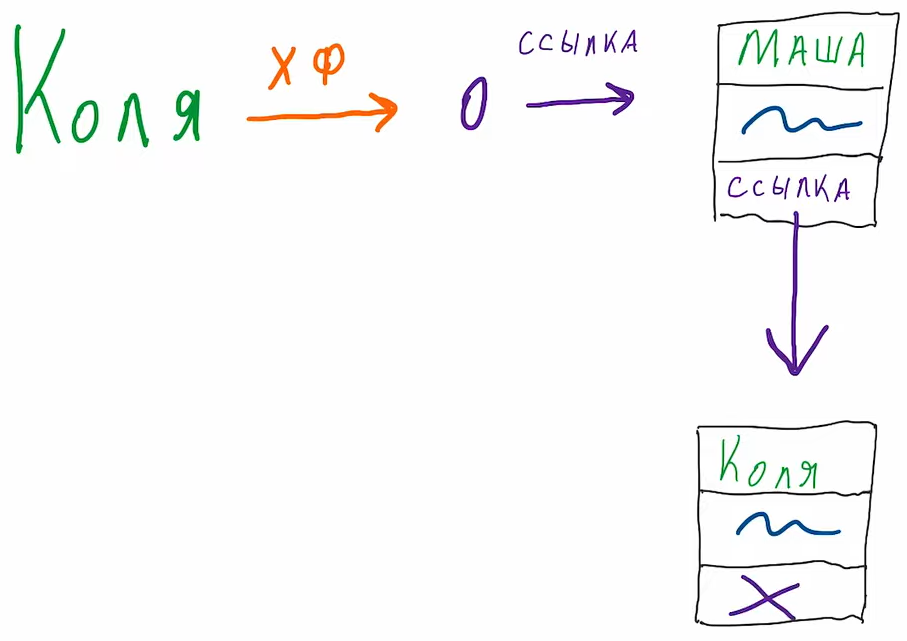 Коля ХФ 0 ссылка МАША
ссылка
Коля
X